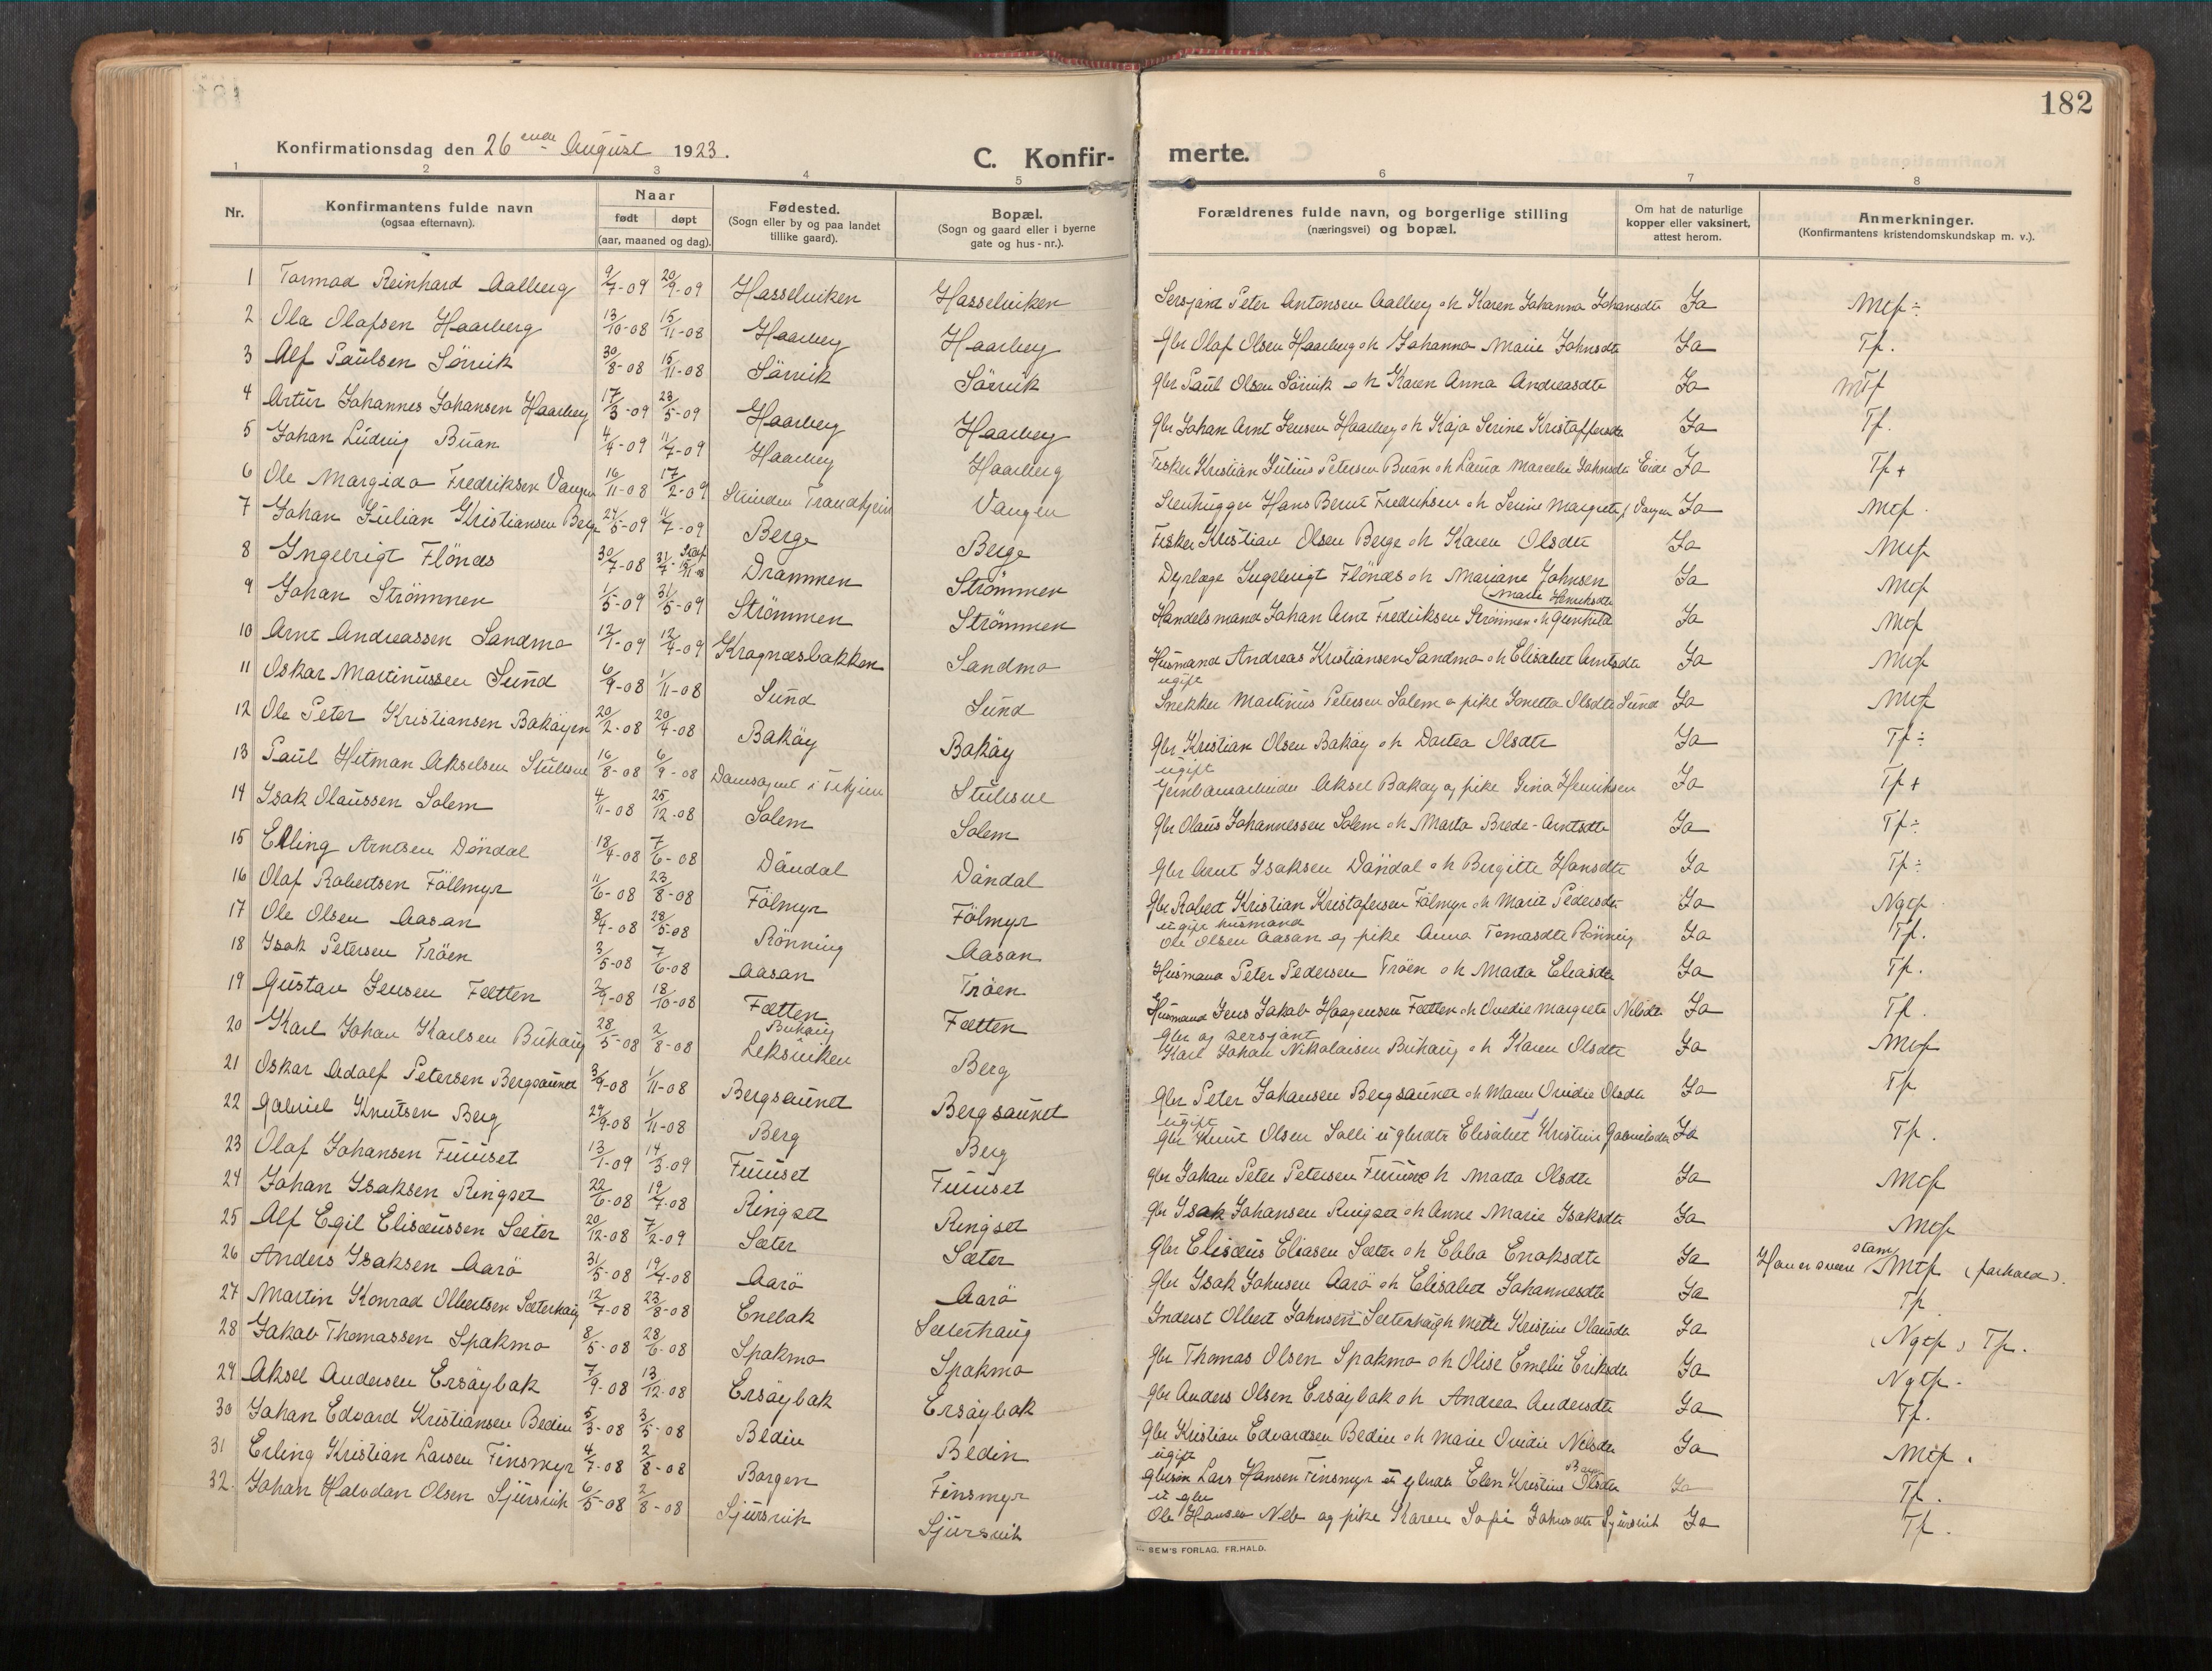 182
Konfirmationsdag den 26 ende August 1923.
C. Konfir- merte.
1 2 3 4 5 6 7 8
Nr.
Konfirmantens fulde navn
(ogsaa efternavn).
Naar
født døpt
(aar, maaned og dag).
Fødested.
(Sogn eller by og paa landet
tillike gaard).
Bopæl.
(Sogn og gaard eller i byerne
gate og hus-nr.).
Forældrenes fulde navn, og borgerlige stilling
(næringsvei) og bopæl.
Om hat de naturlige
kopper eller vaksinert,
attest herom.
Anmerkninger.
(Konfirmantens kristendomskundskap m. v.).
1 Tormod Reinhard Aalberg 9/7-09 20/9-09 Hasselviken Hasselviken Sersjant Peter Antonsen Aalberg oh Karen Johanna Johansdtr Ja Mtf÷
2 Ola Olafsen Haarberg 13/10-08 15/11-08 Haarberg Haarberg Gbr Olaf Olsen Haarberg oh Johanna Marie Johnsdtr Ja Tf.
3 Alf Paulsen Sörvik 30/8-08 15/11-08 Sörvik Sörvik gbr Paul Olsen Sörvik oh Karen Anna Andreasdtr Ja Mtf
4 Artur Johannes Johansen Haarberg 17/3-09 23/5-09 Haarberg Haarberg Gbr Johan Arnt Jensen Haarberg oh Kaja Serine Kristoffersdtr Ja Tf.
5 Johan Ludvig Buan 4/4-09 11/7-09 Haarberg Haarberg Fisker Kristian Julius Petersen Buan oh Laura Marcelie Johnsdtr Eide Ja Tf +
6 Ole Margido Fredriksen Vangen 16/11-08 17/2-09 Strinden Trondhjem Vangen Stenhugger Hans Bernt Fredriksen oh Serine Margrete Vangen Ja Mtf.
7 Johan Julian Kristiansen Berge 24/5-09 11/7-09 Berge Berge Fisker Kristian Olsen Berge oh Karen Olsdtr Ja Mtf
8 Ingebrigt Flönæs 30/7-08 31/7 Drammen Strömmen Dyrlæge Ingebrigt Flönæs oh Mariane Johnsen Ja Mtf
9 Johan Strömmen 1/5-09 31/5-09 Strömmen Strömmen Handelsmand Johan Arnt Fredriksen Strömmen oh Gunhild Marie Henriksdtr Ja Mtf
10 Arnt Andreassen Sandmo 12/1-09 12/4-09 Kragnæsbakken Sandmo Husmand Andreas Kristiansen Sandmo oh Elisabet Arntsdtr Ja Mtf
11 Oskar Martinussen Sund 6/9-08 1/11-08 Sund Sund ugift Snekker Martinus Petersen Solem og pike Jonetta Olsdtr Sund Ja Mtf
12 Ole Peter Kristiansen Baköyen 20/2-08 20/4-08 Baköy Baköy Gbr Kristian Olsen Baköy oh Dortea Olsdtr Ja Tf÷
13 Paul Hitman Akselsen 16/8-08 6/9-08 ugift Jernbanearbeider Aksel Baköy og pike Gina Henriksen Ja Tf +
14 Isak Olaussen Solem 4/11-08 25/12-08 Solem Solem Gbr Olaus Johannessen Solem oh Marta Brede-Arntsdtr Ja Tf÷
15 Elling Arntsen Döndal 18/4-08 7/6-08 Döndal Döndal Gbr Arnt Isaksen Döndal oh Bergitte Hansdtr Ja Tf÷
16 Olaf Robertsen Föllmyr 11/6-08 23/8-08 Fölmyr Fölmyr Gbr Robert Kristian Kristofersen Fölmyr oh Marit Pedersdtr Ja Ngtf
17 Ole Olsen Aasan 8/4-08 28/5-08 Rönning Aasan ugift husmand Ole Olsen Aasan og pike Anna Tomasdtr Rönning Ja Tf.
18 Isak Petersen Tröen 3/5-08 7/6-08 Aasan Tröen Husmand Peter Pedersen Tröen oh Marta Eliasdtr Ja Tf.
19 Gustav Jensen Fætten 2/9-08 18/10-08 Fætten Fætten Husmand Jens Jakob Haagensen Fætten oh Ovedie Margrete Nilsdtr Ja Tf.
20 Karl Johan Karlsen Buhaug 28/5-08 2/8-08 Buhaug Leksviken Berg Gbr og sersjant Karl Johan Nikolaisen Buhaug oh Karen Olsdtr Ja Mtf
21 Oskar Adolf Petersen Bergsaunet 3/9-08 1/11-08 Bergsaunet Bergsaunet Gbr Peter Johansen Bergsaunet oh Maren Ovidie Olsdtr Ja Tf
22 Gabriel Knutsen Berg 29/9-08 1/11-08 Berg Berg ugift Gbr Knut Olsen Solli u gbrdtr Elisabet Kristine Gabrielsdtr Ja Tf.
23 Olaf Johansen Fuuset 13/1-09 14/3-09 Fuuset Fuuset Gbr Johan Peter Petersen Fuuset oh Marta Olsdtr Ja Mtf
24 Johan Isaksen Ringset 22/6-08 19/7-08 Ringset Ringset Gbr Isak Johansen Ringset oh Anne Marie Isaksdtr Ja Mtf
25 Alf Egil Elisæussen Sæter 20/12-08 7/2-09 Sæter Sæter Gbr Elisæus Eliasen Sæter oh Ebba Enoksdtr Ja Han er svær stam Mtf (forhold).
26 Anders Isaksen Aarö 31/5-08 19/7-08 Aarö Aarö Gbr Isak Johnsen Aarö oh Elisabet Johannesdtr Ja Tf
27 Martin Konrad Olbertsen Sæterhaug 12/7-08 23/8-08 Enebak Sæterhaug Inderst Olbert Johnsen Sæterhaug oh Mette Kristine Olausdtr Ja (Ngtf) Tf.
28 Jakob Thomassen Spakmo 8/5-08 28/6-08 Spakmo Spakmo Gbr Thomas Olsen Spakmo oh Olise Emelie Eriksdtr Ja Ngtf-
29 Aksel Andersen Ersöybak 7/9-08 13/12-08 Ersöybak Ersöybak Gbr Anders Olsen Ersöybak oh Andrea Andersdtr Ja Tf.
30 Johan Edvard Kristiansen Bedin 5/3-08 3/5-08 Bedin Bedin Gbr Kristian Edvardsen Bedin oh Marie Ovidie Nilsdtr Ja Mtf.
31 Erling Kristian Larsen Finsmyr 4/7-08 2/8-08 Borgen Finsmyr ugift gbrsøn Lars Hansen Finsmyr Elen Kristine Olsdtr Ja Tf.
32. Johan Halvdan Olsen Sjursvik 6/5-08 2/8-08 Sjursvik Sjursvik Ole Hansen og pike Karen Sofi Johnsdtr Sjursvik Ja Tf.
SEM'S FORLAG, FR.HALD.